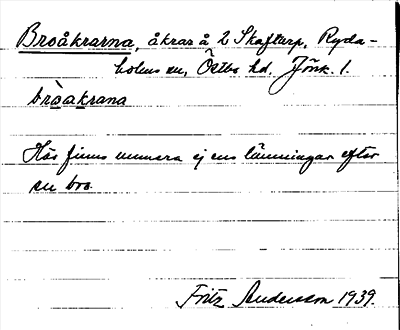 Broåkrarna, åkrar å 2 Skaftarp, Ryda-
holms sn, Östbo hd, Jönk. l.
bròakrana
Här finns numera ej ens lämningar efter
en bro.
Fritz Andersson 1939.